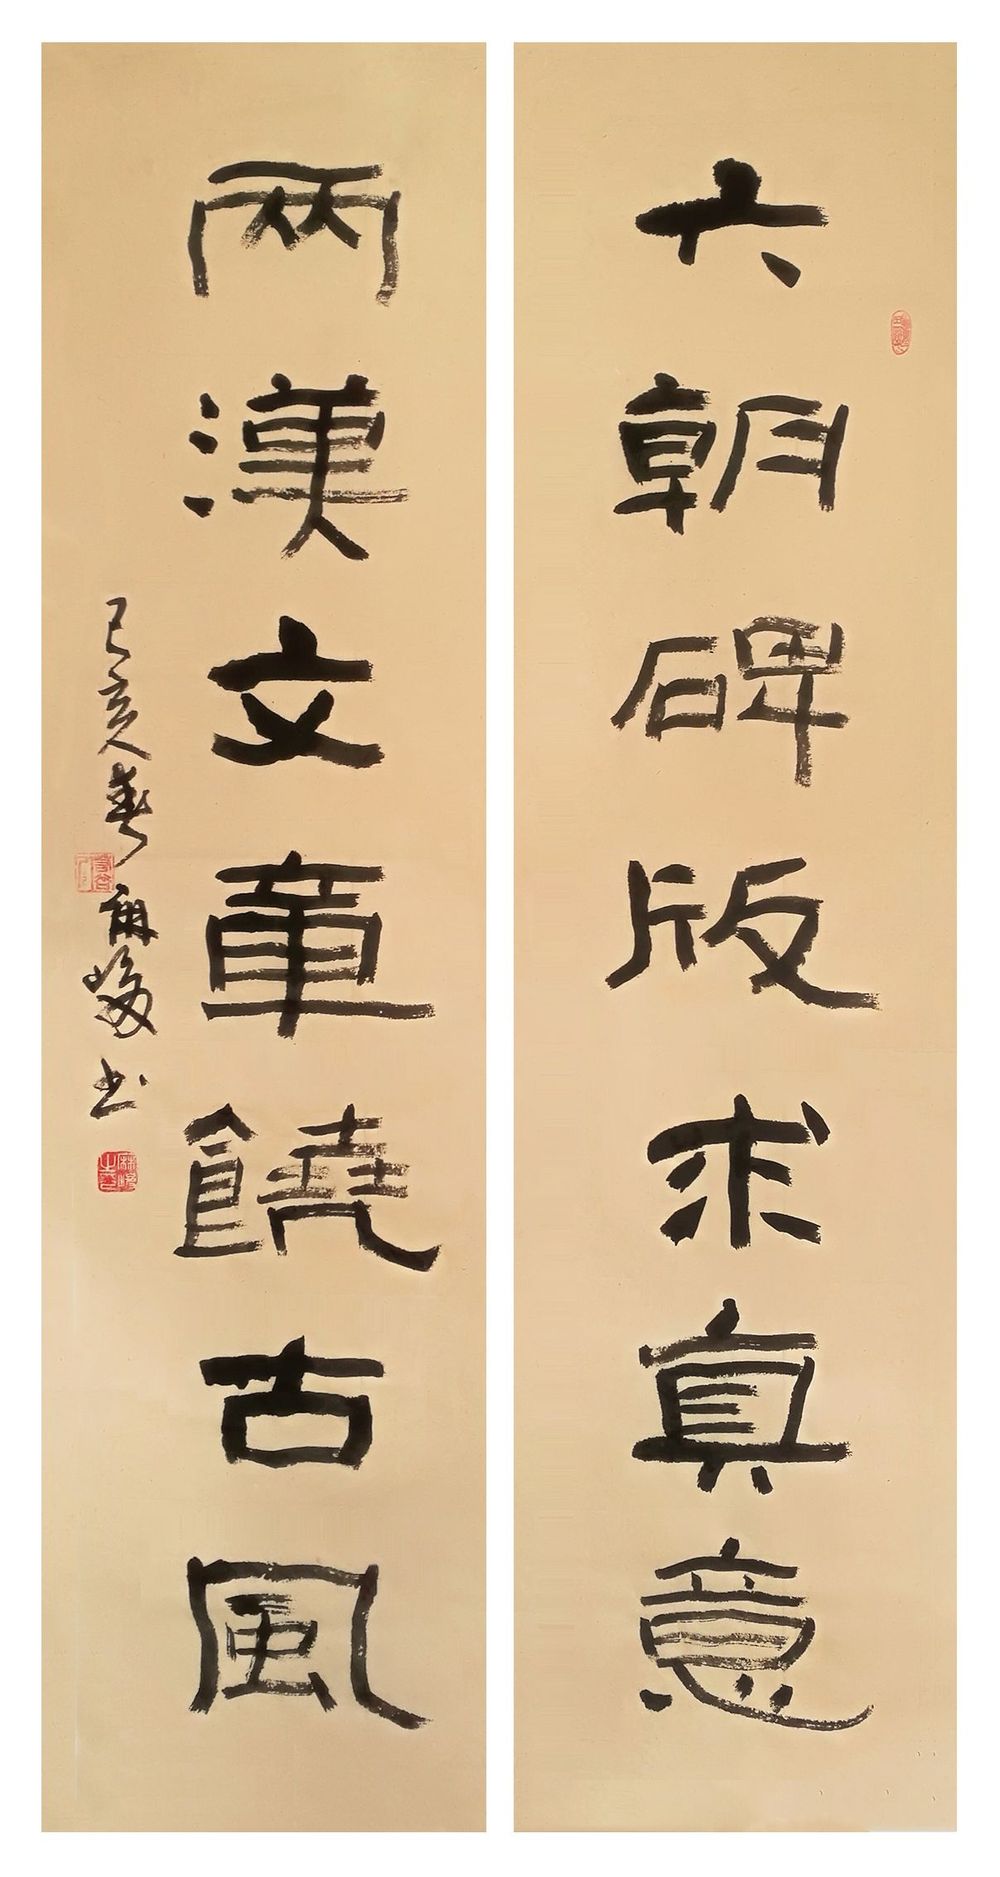 六朝碑版求真意
兩漢文章饒古風
己亥春 爾俊 书